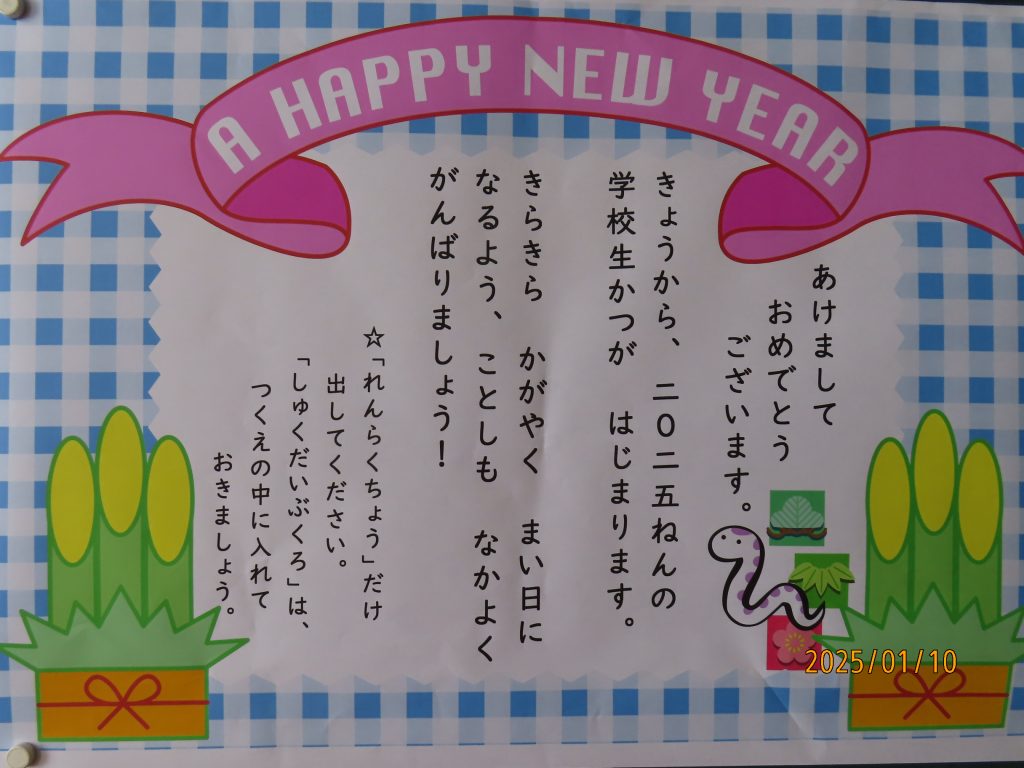 A HAPPY NEW YEAR
あけまして
おめでとう
ございます。
きょうから、 二〇二五ねんの
学校生かつが はじまります。
きらきら かがやく まい日に
なるよう、 ことしも なかよく
がんばりましょう！
☆「れんらくちょう」だけ
出してください。
「しゅくだいぶくろ」は、
つくえの中に入れて
おきましょう。
2025/01/10